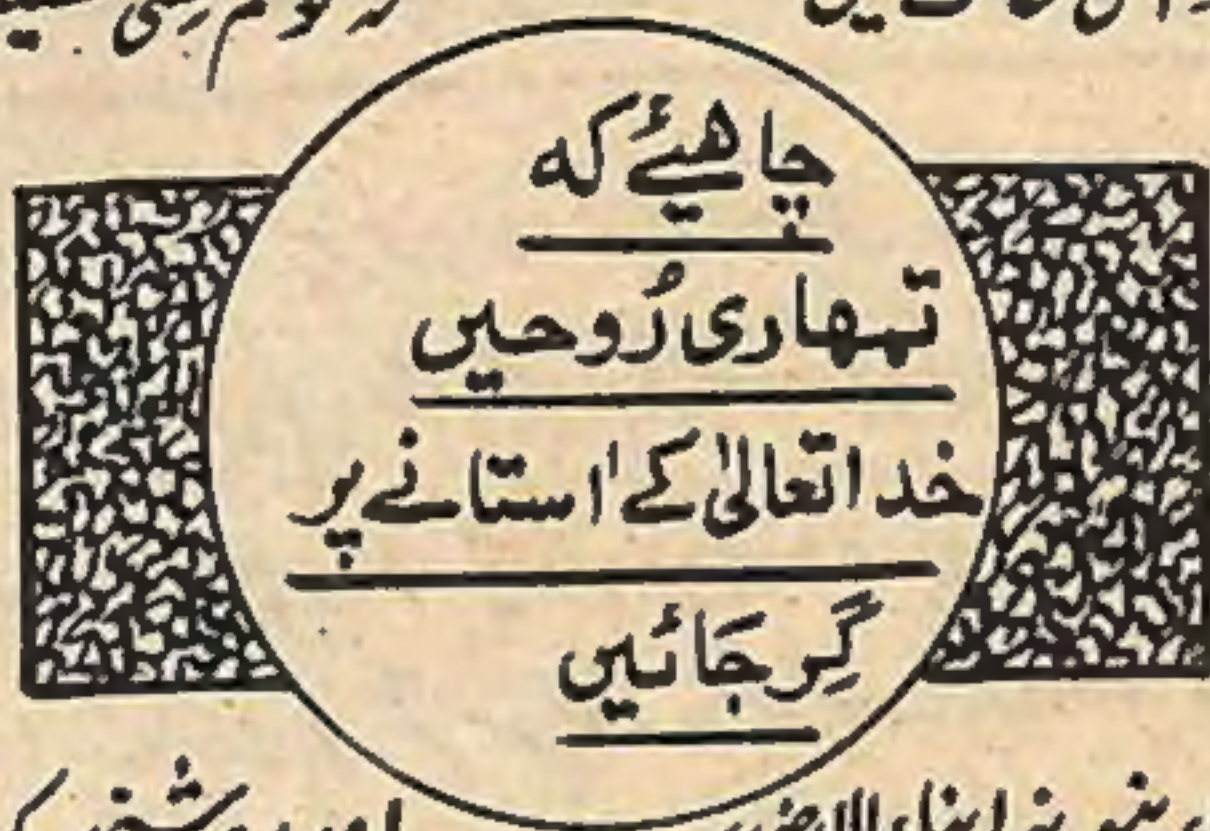 چاهیئے که
تمهاری رُوحیں
خدا تعالیٰ کے استانے پر
گِر جَائیں